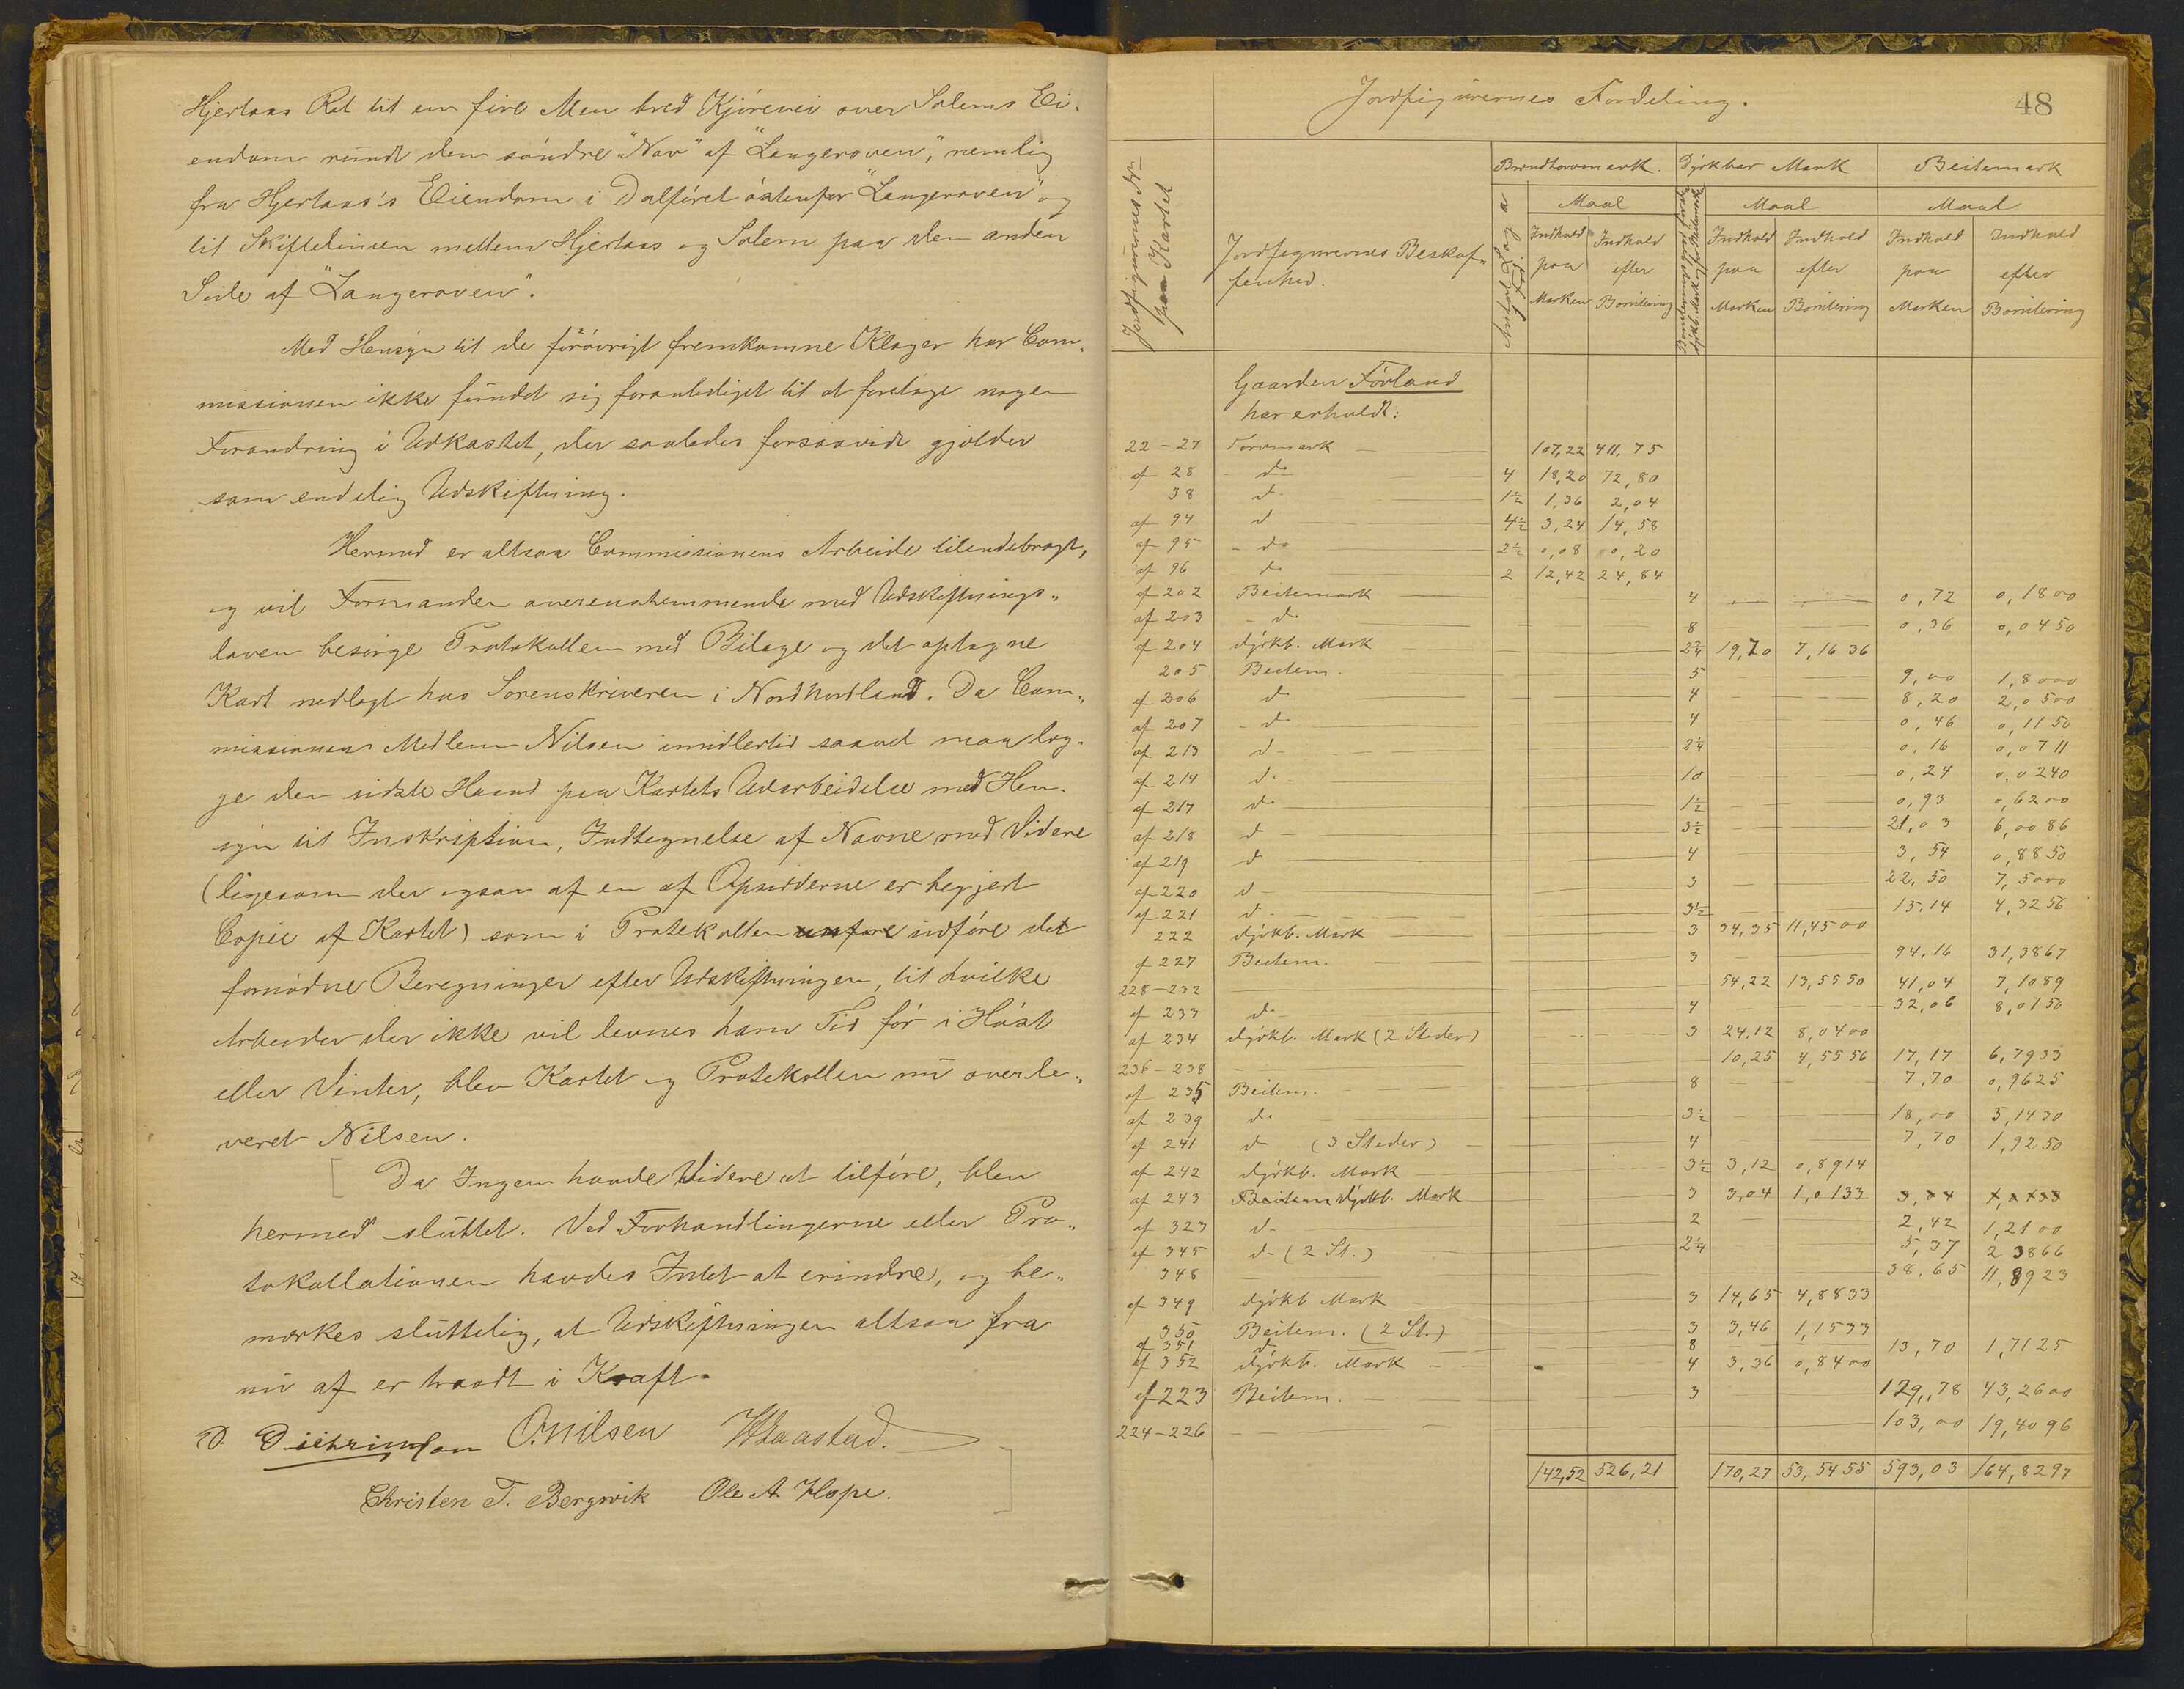 Hjertaas Ret til en fire Alen bred Kjörevei over Solems Ei-
endom rundt den söndre "Nov" af "Langeroven", nemlig
fra Hjertaas's Eiendom i Dalföret östenfor "Langeroven" og
til Skiftelinien mellem Hjertaas og Solem paa den anden
Side af "Langeroven".
Med Hensyn til de förövrigt fremkomne Klager har Com-
missionen ikke fundet sig foranlediget til at foretage nogen
Forandring i Udkastet, der saaledes forsaavidt gjælder
som endelig Udskiftning.
Hermed er altsaa Commissionens Arbeide tilendebragt,
og vil Formanden overensstemmende med Udskiftnings-
loven besörge Protokollen med Bilage og det optagne
Kart nedlagt hos Sorenskriveren i Nordhordland. Da Com-
missionens Medlem Nilsen imidlertid saavel maa læg-
ge den sidste Haand paa Kartets Udarbeidelse med Hen-
syn til Inskription, Indtegnelse af Navne med Videre
(ligesom der ogsaa af en af Opsidderne er begjert
Copie af Kartet) som i Protokollen indföre de
fornödne Beregninger efter Udskiftningen, til hvilke
Arbeider der ikke vil levnes ham Tid för i Höst
eller Vinter, blev Kartet og Protokollen nu overle-
veret Nilsen.
Da Ingen havde Videre at tilföre, blev
hermed sluttet. Ved Forhandlingerne eller Pro-
tokollationen havdes Intet at erindre, og be-
mærkes sluttelig, at Udskiftningen altsaa fra
nu af er traadt i Kraft.
D. Diehrimson O. Nilsen Haastad.
Christen T. Bergsvik Ole A. Hope.
Jordfigurernes Fordeling. 48
Brændtorvmark. Dyrkbar Mark Beitemark
Jordfigurernes Nr. paa Kartet
Jordfigurernes Beskaf-
fenhed.
Maal Maal Maal
Indhold paa Marken Indhold efter Bonitering Indhold paa Marken Indhold efter Bonitering Indhold paa Marken Indhold efter Bonitering
Gaarden Förland
har erholdt:
22-27 Torvmark 107,22 411,75
af 28 do 4 18,20 72,80
38 do 1½ 1,36 2,04
af 94 do 4½ 3,24 14,58
af 95 do 2½ 0,08 0,20
af 96 do 2 12,42 24,84
af 202 Beitemark 4 0,72 0,1800
af 203 do 8 0,36 0,0450
af 204 dyrkb. Mark 2¾ 19,70 7,1636
205 Beitem. 5 9,00 1,8000
af 206 do 4 8,20 2,0500
af 207 do 4 0,46 0,1150
af 213 do 2¼ 0,16 0,0711
af 214 do 10 0,24 0,0240
af 217 do 1½ 0,93 0,6200
af 218 do 3½ 21,03 6,0086
af 219 do 4 3,54 0,8850
af 220 do 3 22,50 7,5000
af 221 do 3½ 15,14 4,3256
222 dyrkb. Mark 3 34,35 11,4500
af 227 Beitem. 3 94,16 31,3867
228-232 54,22 13,5550 41,04 7,1089
af 233 do 4 32,06 8,0150
af 234 dyrkb. Mark (2 Steder) 3 24,12 8,0400
236-238 10,25 4,5556 17,17 6,7933
af 235 Beitem. 8 7,70 0,9625
af 239 do 3½ 18,00 5,1430
af 241 do (3 Steder) 4 7,70 1,9250
af 242 dyrkb. Mark 3½ 3,12 0,8914
af 243 Beitem dyrkb. Mark 3 3,04 1,0133
af 323 do 2 2,42 1,2100
af 345 do (2 St.) 2¼ 5,37 2,3866
348 38,65 11,8923
af 349 dyrkb Mark 3 14,65 4,8833
350 Beitem. (2 St.) 3 3,46 1,1533
af 351 do 8 13,70 1,7125
af 352 dyrkb. Mark 4 3,36 0,8400
af 223 Beitem. 3 129,78 43,2600
224-226 103,00 19,4096
142,52 526,21 170,27 53,5455 593,03 164,8297